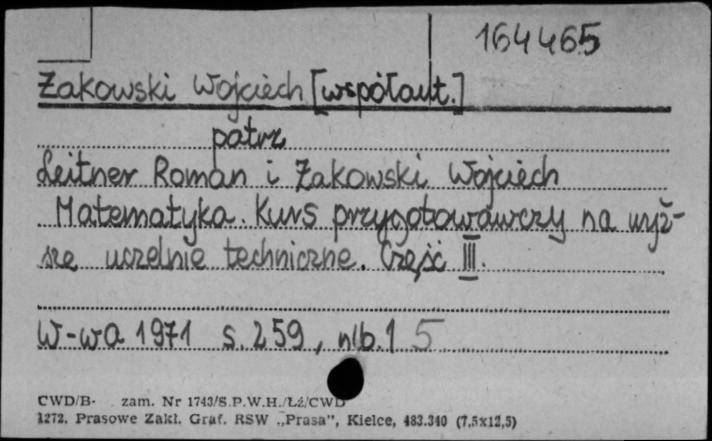 164465
Żakowski Wojciech [współaut.]
patrz
Leitner Roman i Żakowski Wojciech
Matematyka. Kurs przygotowawczy na wyż-
sze uczelnie techniczne. Część III.
W-wa 1971 s. 259, nlb. 1 5
CWD/B- zam. Nr 1743/S.P.W.H./Łź/CWD
1272. Prasowe Zakł. Graf. RSW „Prasa", Kielce, 483.340 (7,5x12,5)